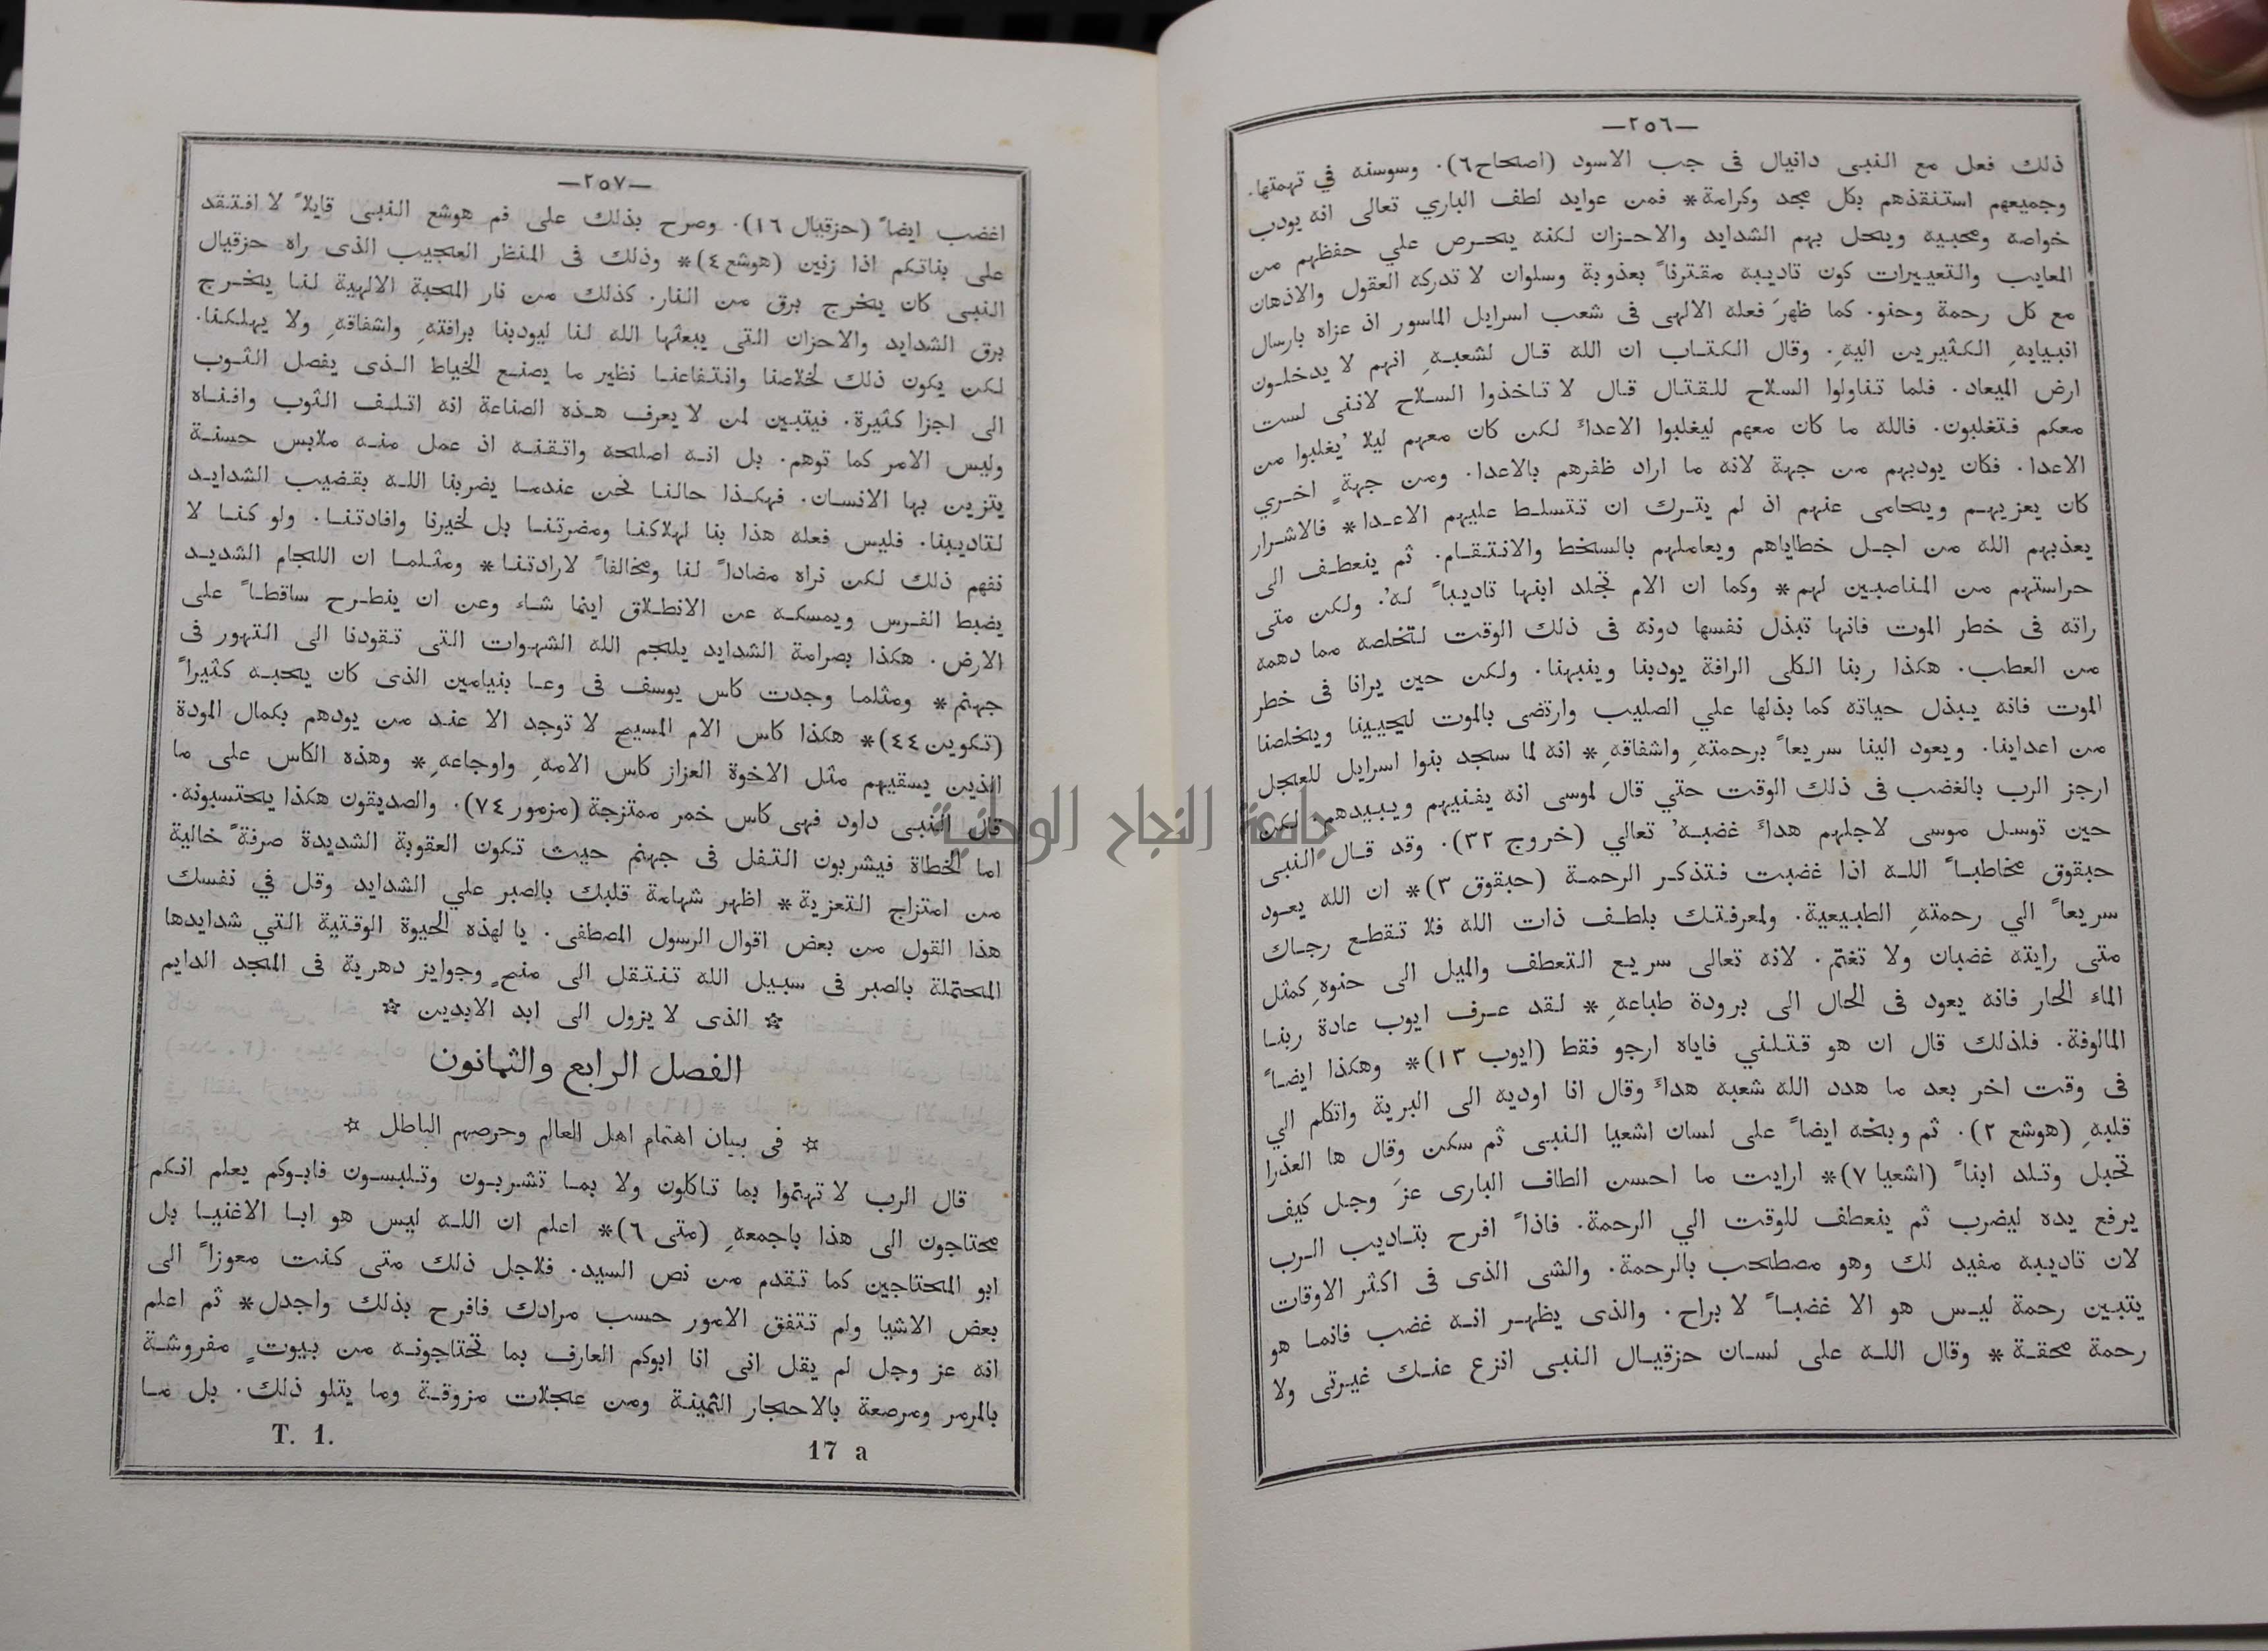 —٢٥٦—
ذلك فعل مع النبى دانيال فى جب الاسود (اصحاح ٦). وسوسنه في تهمتها.
وجميعهم استنقذهم بكل مجد وكرامة* فمن عوايد لطف الباري تعالى انه يودب
خواصه ومحبيه ويحل بهم الشدايد والاحزان لكنه يحرص علي حفظهم من
المعايب والتعييرات كون تاديبه مقترناً بعذوبة وسلوان لا تدركه العقول والاذهان
مع كل رحمة وحنو. كما ظهرَ فعله الالهى فى شعب اسرايل الماسور اذ عزاه بارسال
انبيايهِ الكثيرين اليهِ. وقال الكتاب ان الله قال لشعبهِ انهم لا يدخلون
ارض الميعاد. فلما تناولوا السلاح للقتال قال لا تاخذوا السلاح لاننى لست
معكم فتغلبون. فالله ما كان معهم ليغلبوا الاعداءَ لكن كان معهم ليلا يُغلبوا من
الاعدا. فكان يودبهم من جهة لانه ما اراد ظفرهم بالاعدا. ومن جهةٍ اخري
كان يعزيهم ويحامى عنهم اذ لم يترك ان تتسلط عليهم الاعدا* فالاشرار
يعذبهم الله من اجل خطاياهم ويعاملهم بالسخط والانتقام. ثم ينعطف الى
حراستهم من المناصبين لهم* وكما ان الام تجلد ابنها تاديباً لهُ. ولكن متى
راته فى خطر الموت فانها تبذل نفسها دونه فى ذلك الوقت لتخلصه مما دهمه
من العطب. هكذا ربنا الكلى الرافة يودبنا وينبهنا. ولكن حين يرانا فى خطر
الموت فانه يبذل حياته كما بذلها علي الصليب وارتضى بالموت ليحيينا ويخلصنا
من اعداينا. ويعود الينا سريعاً برحمتهِ واشفاقهِ* انه لما سجد بنوا اسرايل للعجل
ارجز الرب بالغضب فى ذلك الوقت حتي قال لموسى انه يفنيهم ويبيدهم. لكن
حين توسل موسى لاجلهم هداءَ غضبهُ تعالي (خروج ٣٢). وقد قال النبى
حبقوق مخاطباً الله اذا غضبت فتذكر الرحمة (حبقوق ٣)* ان الله يعود
سريعاً الي رحمتهِ الطبيعية. ولمعرفتك بلطف ذات الله فلا تقطع رجاك
متى رايته غضبان ولا تغتم. لانه تعالى سريع التعطف والميل الى حنوهِ كمثل
الماءِ الحار فانه يعود فى الحال الى برودة طباعهِ* لقد عرف ايوب عادة ربنا
المالوفة. فلذلك قال ان هو قتلني فاياه ارجو فقط (ايوب ١٣)* وهكذا ايضاً
فى وقت اخر بعد ما هدد الله شعبه هداءَ وقال انا اوديه الى البرية واتكلم الي
قلبهِ (هوشع ٢). ثم وبخه ايضاً على لسان اشعيا النبى ثم سكن وقال ها العذرا
تحبل وتلد ابناً (اشعيا ٧)* ارايت ما احسن الطاف البارى عزَ وجل كيف
يرفع يده ليضرب ثم ينعطف للوقت الي الرحمة. فاذاً افرح بتاديب الرب
لان تاديبه مفيد لك وهو مصطحب بالرحمة. والشى الذى فى اكثر الاوقات
يتبين رحمة ليس هو الا غضباً لا براح. والذى يظهر انه غضب فانما هو
رحمة محقة* وقال الله على لسان حزقيال النبى انزع عنك غيرتى ولا
—٢٥٧—
اغضب ايضاً (حزقيال ١٦). وصرح بذلك على فم هوشع النبى قايلاً لا افتقد
على بناتكم اذا زنين (هوشع ٤)* وذلك فى المنظر العجيب الذى راه حزقيال
النبى كان يخرج برق من النار. كذلك من نار المحبة الالهية لنا يخرج
برق الشدايد والاحزان التى يبعثها الله لنا ليودبنا برافتهِ واشفاقهِ ولا يهلكنا.
لكن يكون ذلك لخلاصنا وانتفاعنا نظير ما يصنع الخياط الذى يفصل الثوب
الى اجزا كثيرة. فيتبين لمن لا يعرف هذه الصناعة انه اتلف الثوب وافناه
وليس الامر كما توهم. بل انه اصلحه واتقنه اذ عمل منه ملابس حسنة
يتزين بها الانسان. فهكذا حالنا نحن عندما يضربنا الله بقضيب الشدايد
لتاديبنا. فليس فعله هذا بنا لهلاكنا ومضرتنا بل لخيرنا وافادتنا. ولو كنا لا
نفهم ذلك لكن نراه مضاداً لنا ومخالفاً لارادتنا* ومثلما ان اللجام الشديد
يضبط الفرس ويمسكه عن الانطلاق اينما شاءَ وعن ان ينطرح ساقطاً على
الارض. هكذا بصرامة الشدايد يلجم الله الشهوات التى تقودنا الى التهور فى
جهنم* ومثلما وجدت كاس يوسف فى وعا بنيامين الذى كان يحبه كثيراً
(تكوين ٤٤)* هكذا كاس الام المسيح لا توجد الا عند من يودهم بكمال المودة
الذين يسقيهم مثل الاخوة العزاز كاس الامهِ واوجاعهِ* وهذه الكاس على ما
قال النبى داود فهى كاس خمر ممتزجة (مزمور ٧٤). والصديقون هكذا يحتسبونه.
اما الخطاة فيشربون التفل فى جهنم حيث تكون العقوبة الشديدة صرفةً خالية
من امتزاج التعزية* اظهر شهامة قلبك بالصبر علي الشدايد وقل في نفسك
هذا القول من بعض اقوال الرسول المصطفى. يا لهذه الحيوة الوقتية التي شدايدها
المحتملة بالصبر فى سبيل الله تنتقل الى منحٍ وجوايز دهرية فى المجد الدايم
☆ الذى لا يزول الى ابد الابدين ☆
الفصل الرابع والثمانون
☆ فى بيان اهتمام اهل العالم وحرصهم الباطل ☆
قال الرب لا تهتمّوا بما تاكلون ولا بما تشربون وتلبسون فابوكم يعلم انكم
محتاجون الى هذا باجمعهِ (متى ٦)* اعلم ان الله ليس هو ابا الاغنيا بل
ابو المحتاجين كما تقدم من نص السيد. فلاجل ذلك متى كنت معوزاً الى
بعض الاشيا ولم تتفق الامور حسب مرادك فافرح بذلك واجدل* ثم اعلم
انه عز وجل لم يقل انى انا ابوكم العارف بما تحتاجونه من بيوتٍ مفروشة
بالمرمر ومرصعة بالاحجار الثمينة ومن عجلات مزوقة وما يتلو ذلك. بل ما
T. 1.
17 a
جامعة النجاح الوطنية